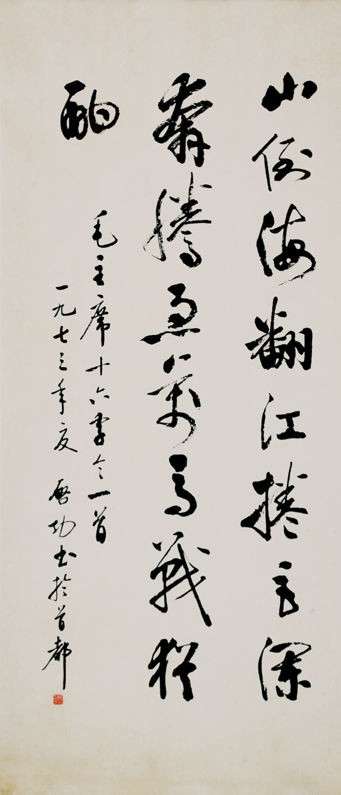 山倒海翻江捲巨瀾
奔騰急萬馬戰猶
酣
毛主席十六字令一首
一九七三年夏 啓功書於首都